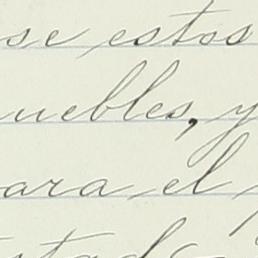 se estos
uebles, y
ara el